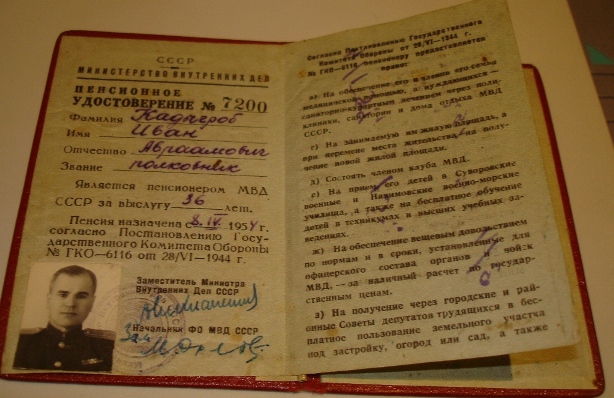 СССР
МИНИСТЕРСТВО ВНУТРЕННИХ ДЕЛ
ПЕНСИОННОЕ
УДОСТОВЕРЕНИЕ № 7200
Фамилия
Имя Иван
Отчество Авраамович
Звание полковник
Является пенсионером МВД
СССР за выслугу 36 лет.
Пенсия назначена 8.IV. 1954 г.
согласно Постановлению Госу-
дарственного Комитета Обороны
№ ГКО—6116 от 28/VI—1944 г.
Заместитель Министра
Внутренних Дел СССР
Начальник ФО МВД СССР
Согласно Постановлению Государственного
Комитета Обороны от 28/VI—1944 г.
№ ГКО—6116 пенсионеру предоставляется
право:
в) На обеспечение его и членов его семьи
медицинской помощью, а нуждающихся —
санаторно-курортным лечением через поли-
клиники, санатории и дома отдыха МВД
СССР.
г) На занимаемую им жилую площадь, а
при перемене места жительства на полу-
чение новой жилой площади.
д) Состоять членом клуба МВД.
е) На прием его детей в Суворовские
военные и Нахимовские военно-морские
училища, а также на бесплатное обучение
детей в техникумах и высших учебных за-
ведениях.
ж) На обеспечение вещевым довольствием
по нормам и в сроки, установленные для
офицерского состава органов и войск
МВД, — за наличный расчет по государ-
ственным ценам.
з) На получение через городские и рай-
онные Советы депутатов трудящихся в бес-
платное пользование земельного участка
под застройку, огород или сад, а также